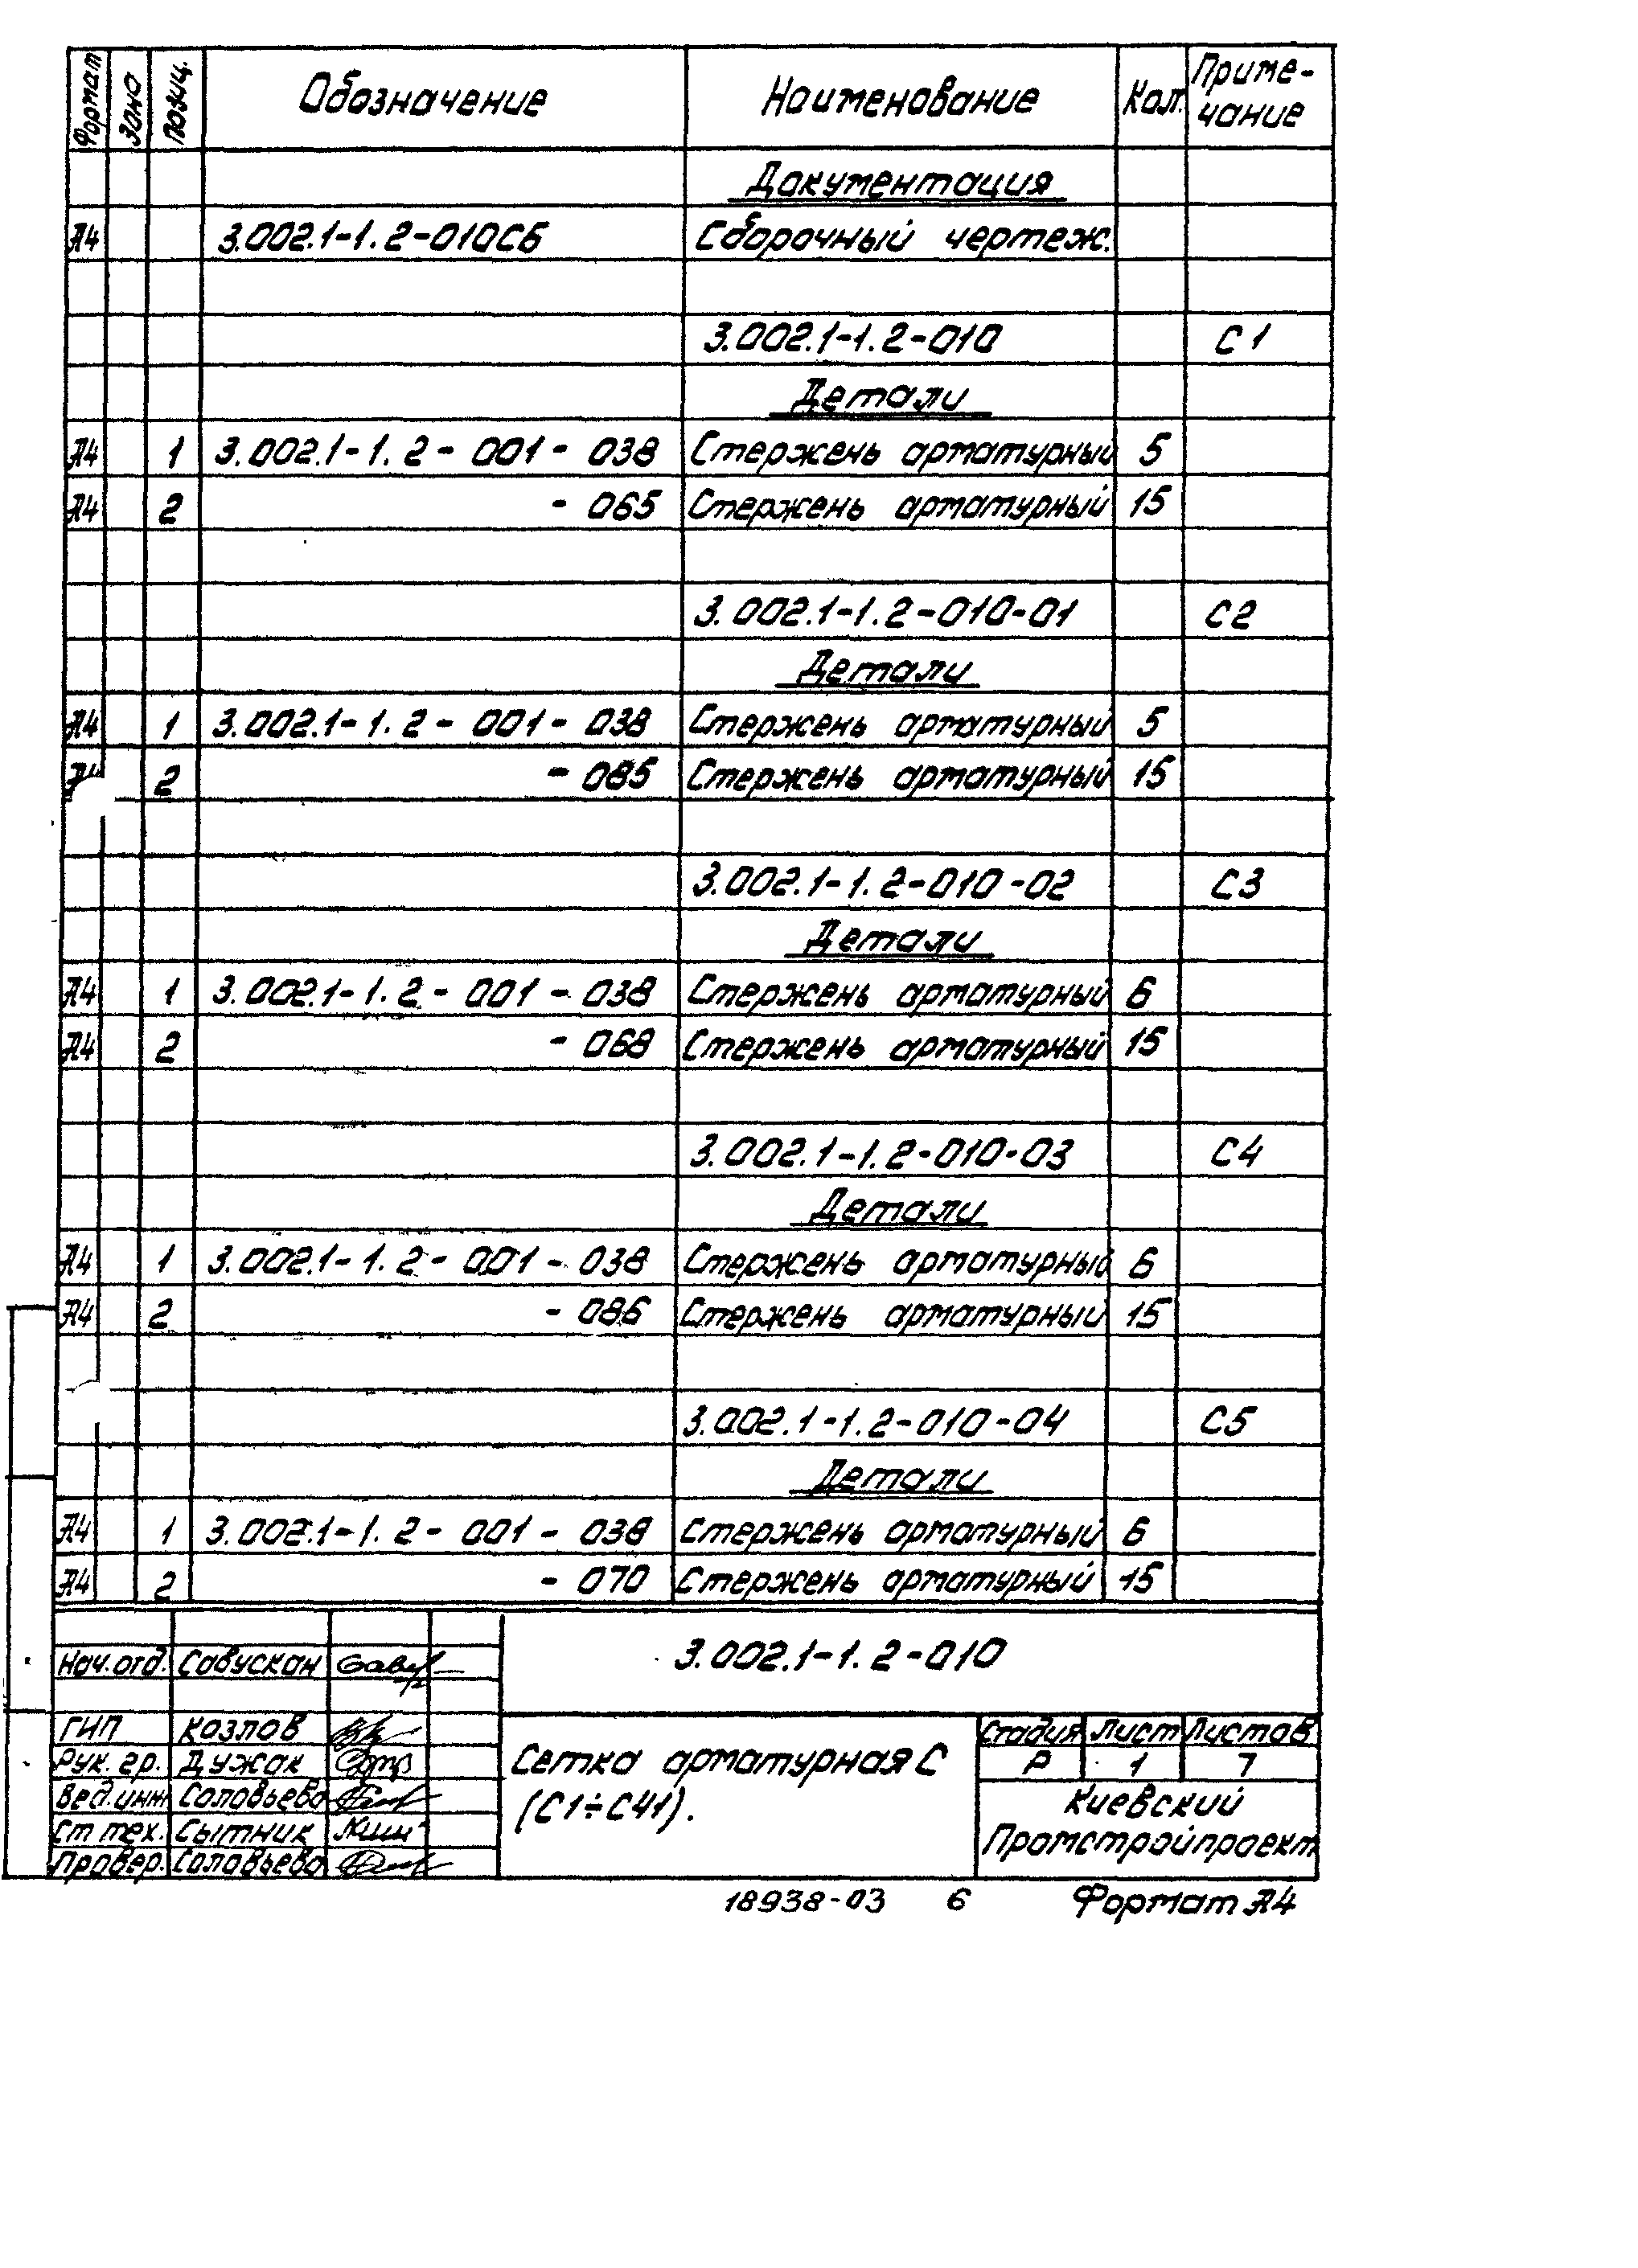 Формат Зона Позиц. Обозначение Наименование Кол. Приме-
чание
Документация
А4 3.002.1-1.2-010СБ Сборочный чертеж.
3.002.1-1.2-010 С1
Детали
А4 1 3.002.1-1.2-001-038 Стержень арматурный 5
А4 2 -065 Стержень арматурный 15
3.002.1-1.2-010-01 С2
Детали
А4 1 3.002.1-1.2-001-038 Стержень арматурный 5
А4 2 -085 Стержень арматурный 15
3.002.1-1.2-010-02 С3
Детали
А4 1 3.002.1-1.2-001-038 Стержень арматурный 6
А4 2 -068 Стержень арматурный 15
3.002.1-1.2-010-03 С4
Детали
А4 1 3.002.1-1.2-001-038 Стержень арматурный 6
А4 2 -086 Стержень арматурный 15
3.002.1-1.2-010-04 С5
Детали
А4 1 3.002.1-1.2-001-038 Стержень арматурный 6
А4 2 -070 Стержень арматурный 15
3.002.1-1.2-010
Нач.отд. Савускан
ГИП Козлов
Рук. гр. Дужак
Вед.инж Соловьева
Ст тех. Сытник
Провер. Соловьева
Сетка арматурная С
(С1÷С41).
Стадия Лист Листов
Р 1 7
Киевский
Промстройпроект
18938-03 6 Формат А4